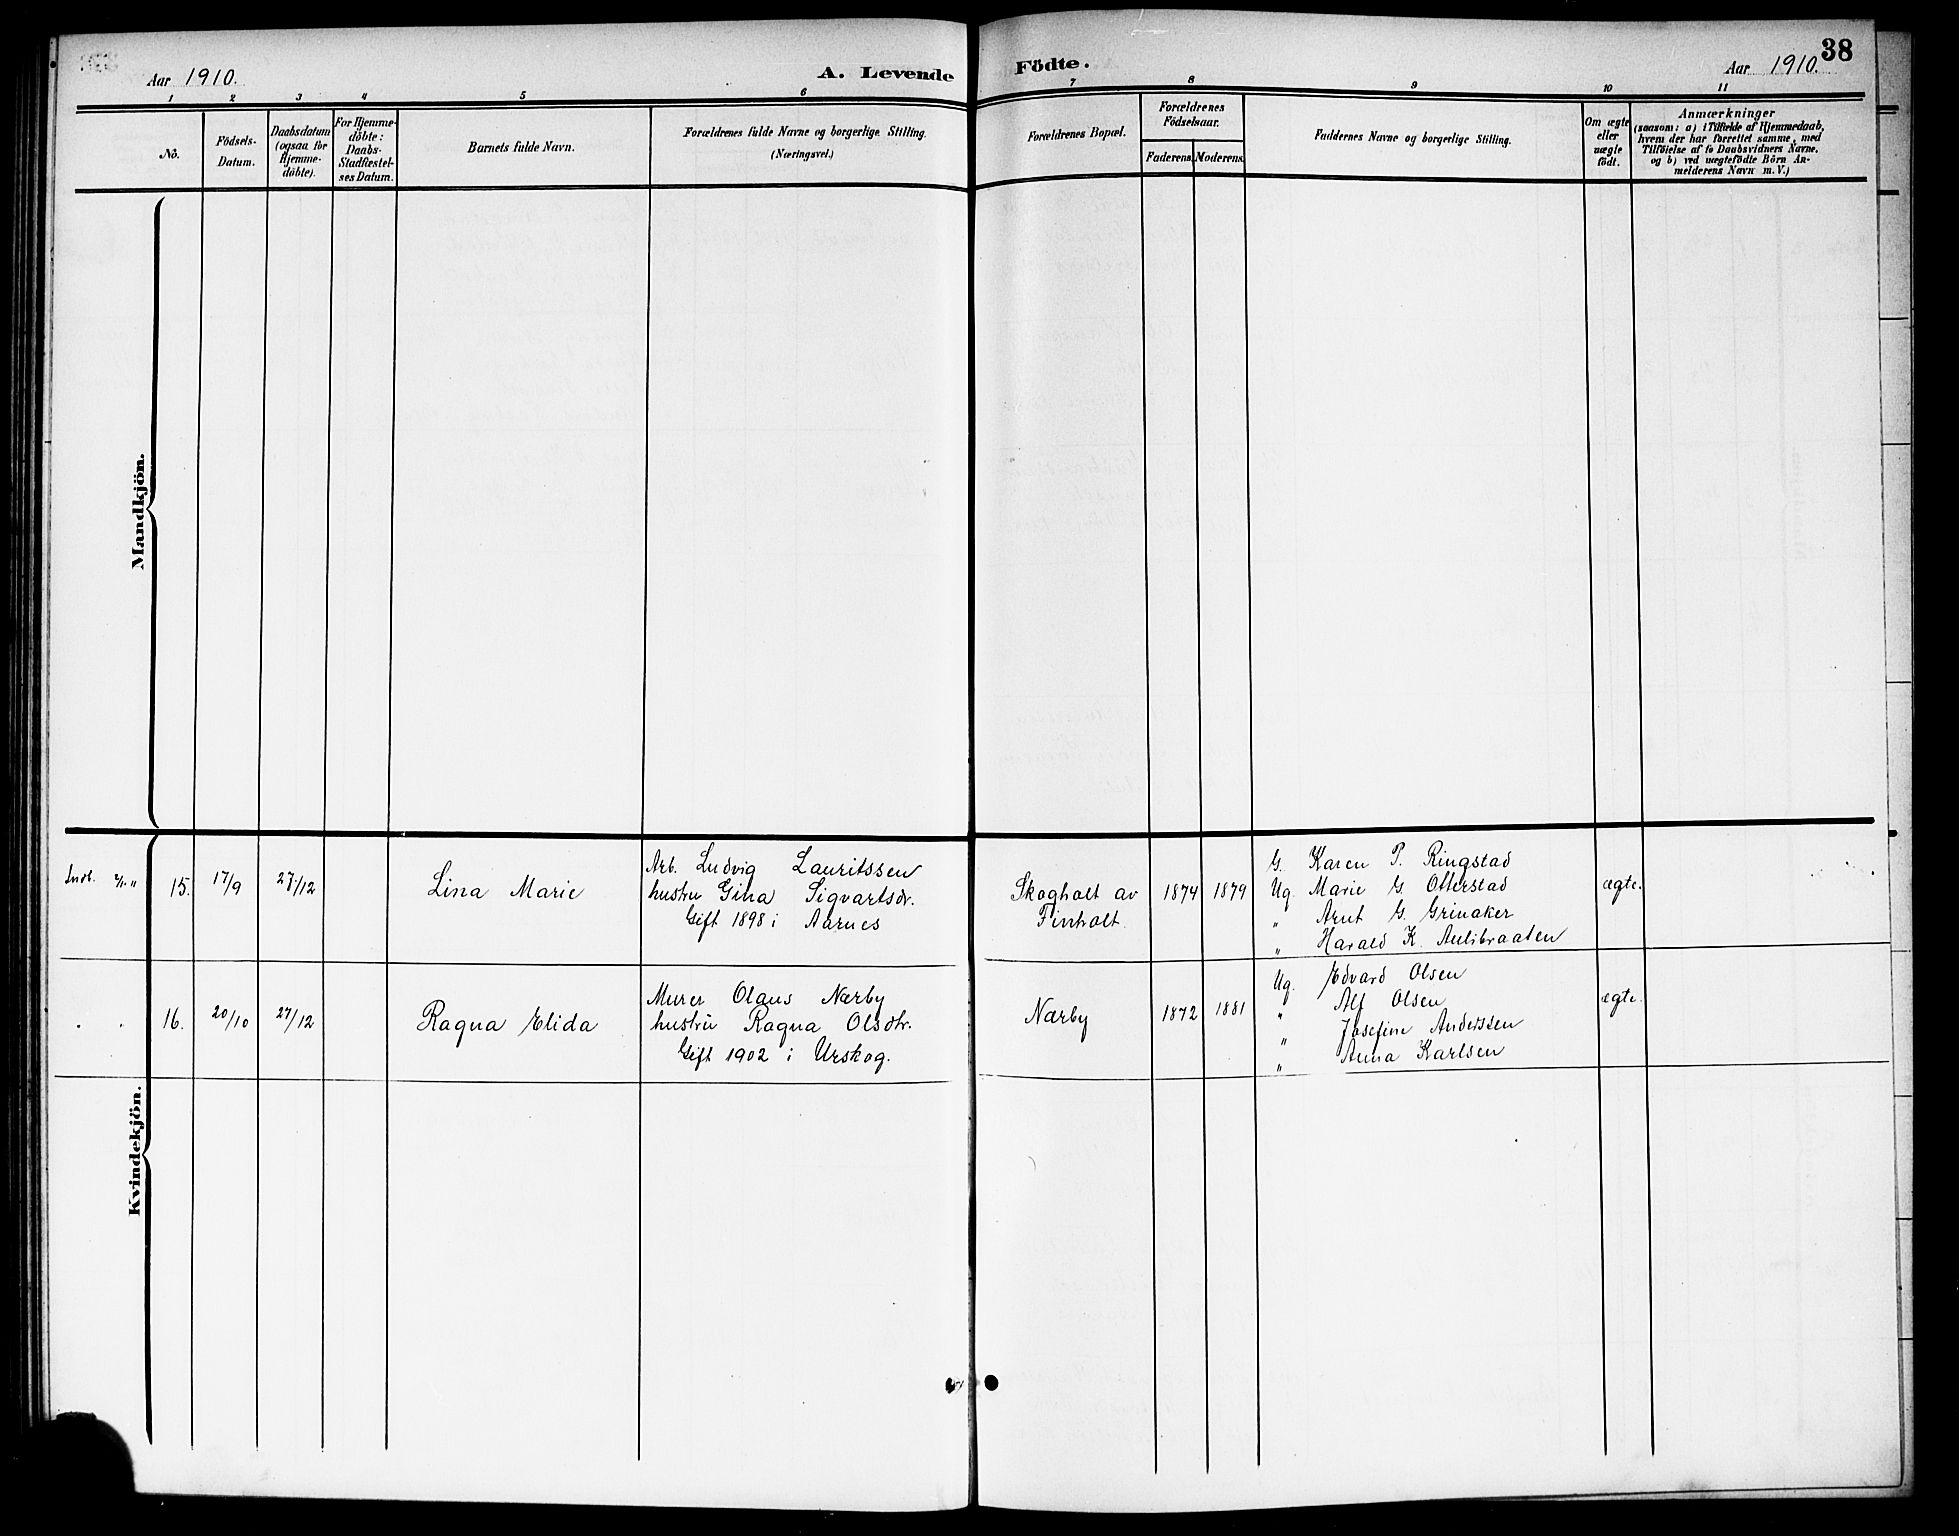 38
Aar 1910.
A. Levende Födte.
Aar 1910.
1 2 3 4 5 6 7 8 9 10 11
No.
Födsels-
Datum.
Daabsdatum
(ogsaa for
Hjemme-
döbte).
For Hjemme-
döbte:
Daabs-
Stadfæstel-
ses Datum.
Barnets fulde Navn.
Forældrenes fulde Navne og borgerlige Stilling.
(Næringsvei.)
Forældrenes Bopæl.
Forældrenes
Födselsaar.
Faderens. Moderens.
Faddernes Navne og borgerlige Stilling.
Om ægte
eller
uægte
födt.
Anmærkninger
(saasom: a) i Tilfælde af Hjemmedaab,
hvem der har forrettet samme, med
Tilföielse af to Daabsvidners Navne,
og b) ved uægtefödte Börn An-
melderens Navn m. V.)
Mandkjön.
Kvindekjön.
15.
17/9
27/12
Lina Marie
Arb. Ludvig Lauritssen
hustru Gina Sigvartsdr.
Gift 1898 i Aarnes
Skogholt av
Finholt.
1874
1879
G. Karen P. Ringstad
Ug. Marie G. Otterstad
" Arnt G. Grinaker
" Harald K. Aulibraaten
ægte.
" "
16.
20/10
27/12
Ragna Elida
Murer Olaus Nærby
hustru Ragna Olsdtr.
Gift 1902 i Urskog.
Nærby
1872
1881
Ug. Edvard Olsen
" Alf Olsen
" Josefine Anderssen
" Anna Karlsen
ægte.